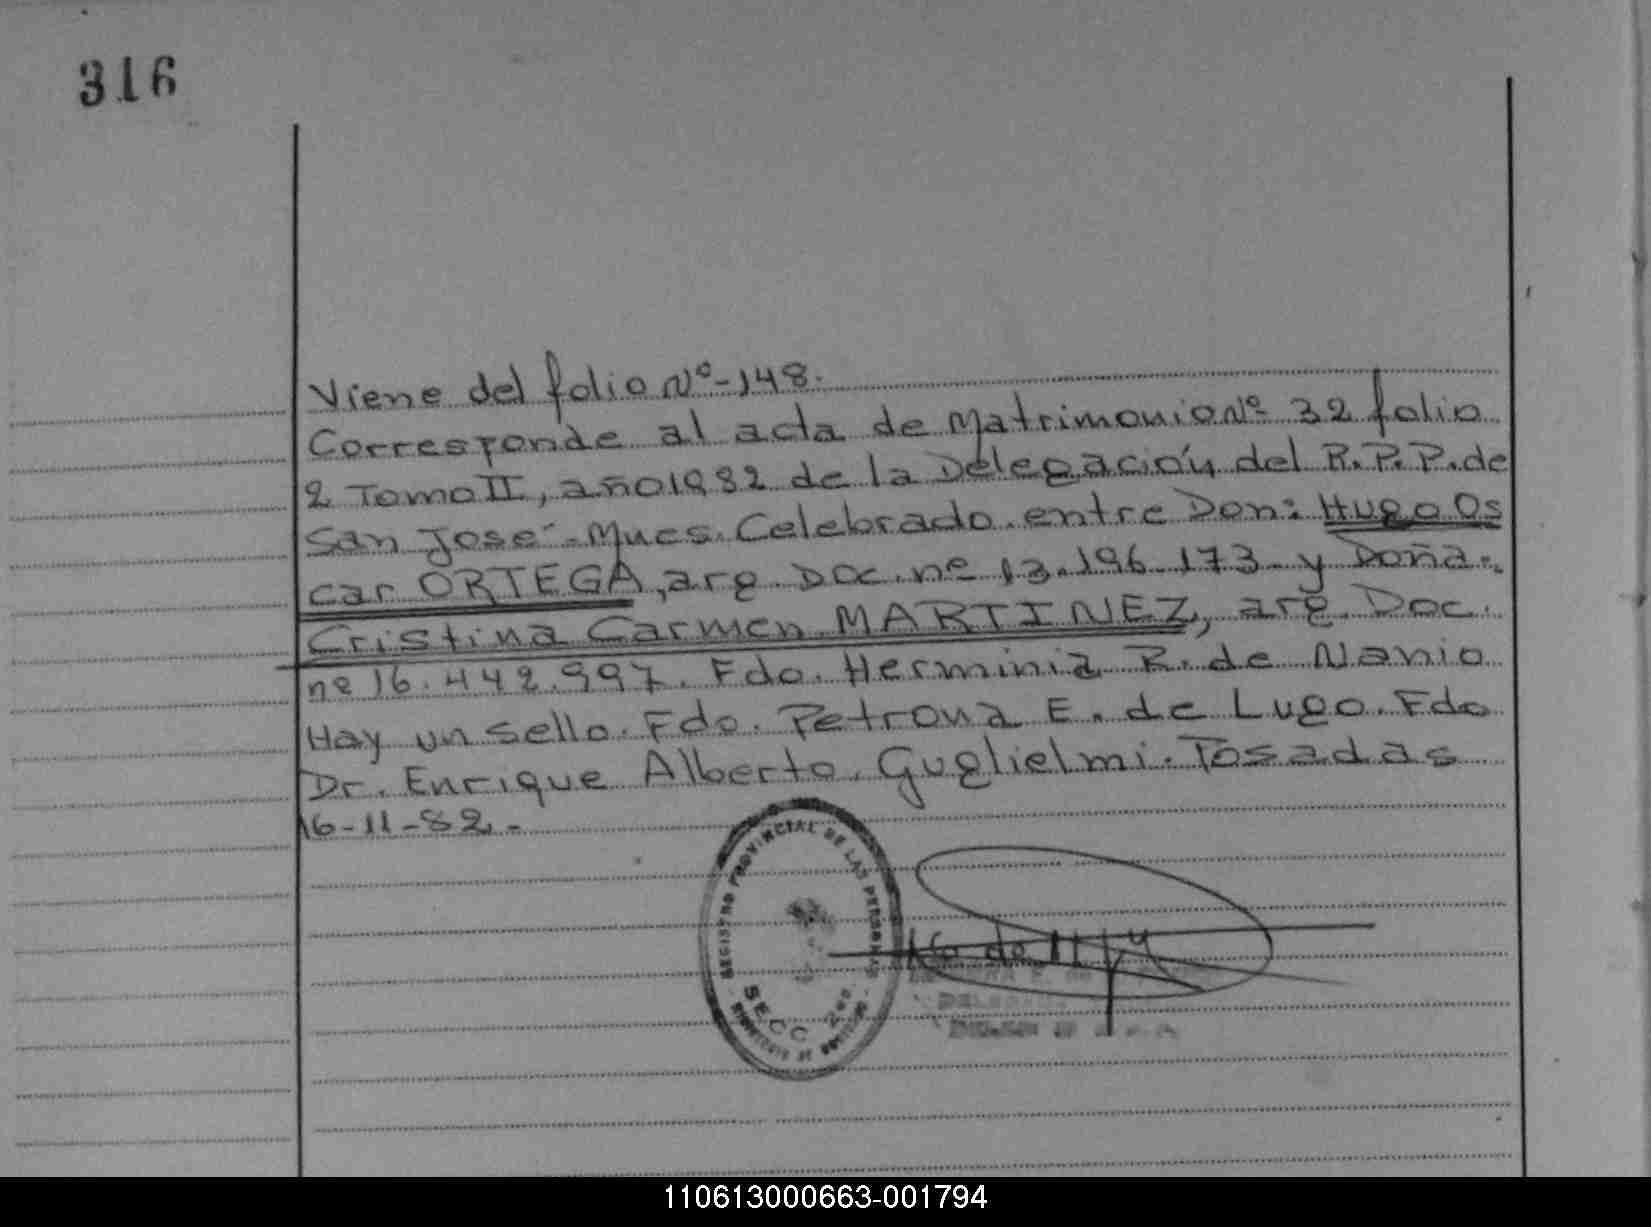 316
Viene del folio Nº-148.
Corresponde al acta de Matrimonio Nº 32 folio
2 Tomo II, año 1982 de la Delegación del R.P.P. de
San José-Mnes. Celebrado entre Don: Hugo Os
car ORTEGA, arg. Doc. nº 13.196.173 y Doña:
Cristina Carmen MARTINEZ, arg. Doc.
nº 16.442.997. Fdo. Herminia R. de Nanio
Hay un sello. Fdo. Petrona E. de Lugo. Fdo
Dr. Enrique Alberto Guglielmi. Posadas
16-11-82.-
REGISTRO PROVINCIAL DE LAS PERSONAS
SECC. 2da
110613000663-001794